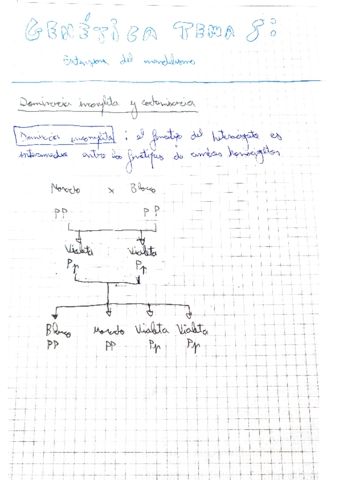 GENÉTICA TEMA 8:
Extensiones del mendelismo
Dominancia incompleta y codominancia
Dominancia incompleta : el fenotipo del heterocigoto es
intermedio entre los fenotipos de ambos homocigotos
Morado x Blanco
PP PP
Violeta Violeta
Pp Pp
Blanco Morado Violeta Violeta
PP PP Pp Pp